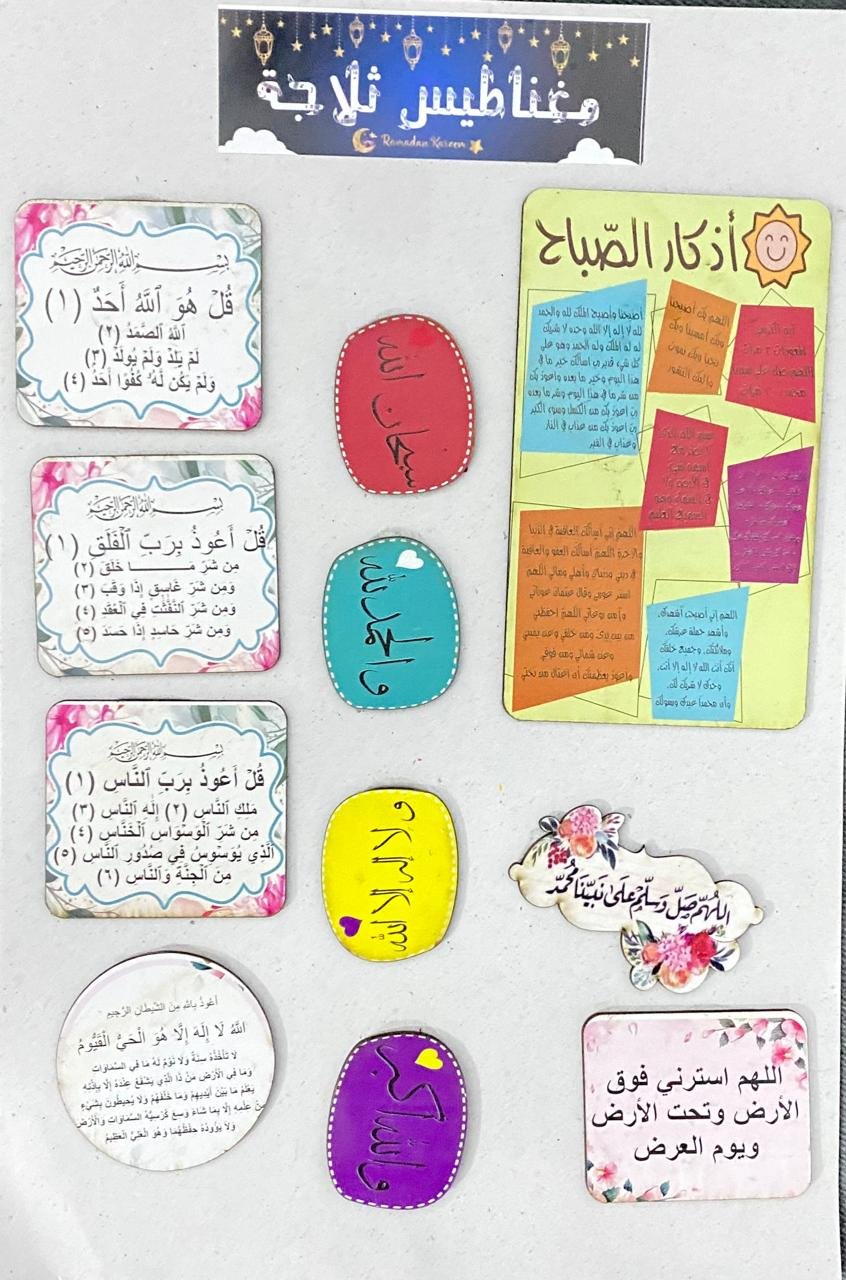 مغناطيس ثلاجة
Ramadan Kareem
أذكار الصّباح
آية الكرسي
المعوذات ٣ مرات
اللهم بك أصبحنا
وبك أمسينا وبك
نحيا وبك نموت
وإليك النشور
أصبحنا وأصبح الملك لله والحمد
لله لا إله إلا الله وحده لا شريك
له له الملك وله الحمد وهو على
كل شيء قدير ربي أسألك خير ما في
هذا اليوم وخير ما بعده وأعوذ بك
من شر ما في هذا اليوم وشر ما بعده
ربي أعوذ بك من الكسل وسوء الكبر
ربي أعوذ بك من عذاب في النار
وعذاب في القبر
اللهم إني أسألك العافية في الدنيا
والآخرة اللهم أسألك العفو والعافية
في ديني ودنياي وأهلي ومالي اللهم
استر عورتي
اللهم احفظني
من بين يدي ومن خلفي وعن يميني
وعن شمالي ومن فوقي
وأعوذ بعظمتك أن أغتال من تحتي
اللهم إني أصبحت أشهدك
وأشهد حملة عرشك
وملائكتك وجميع خلقك
أنك أنت الله لا إله إلا أنت
وحدك لا شريك لك
وأن محمداً عبدك ورسولك
بسم الله الرحمن الرحيم
قُلْ هُوَ ٱللَّهُ أَحَدٌ (١)
ٱللَّهُ ٱلصَّمَدُ (٢)
لَمْ يَلِدْ وَلَمْ يُولَدْ (٣)
وَلَمْ يَكُن لَّهُۥ كُفُوًا أَحَدٌ (٤)
بسم الله الرحمن الرحيم
قُلْ أَعُوذُ بِرَبِّ ٱلْفَلَقِ (١)
مِن شَرِّ مَـــا خَلَقَ (٢)
وَمِن شَرِّ غَاسِقٍ إِذَا وَقَبَ (٣)
وَمِن شَرِّ ٱلنَّفَّٰثَٰتِ فِي ٱلْعُقَدِ (٤)
وَمِن شَرِّ حَاسِدٍ إِذَا حَسَدَ (٥)
بسم الله الرحمن الرحيم
قُلْ أَعُوذُ بِرَبِّ ٱلنَّاسِ (١)
مَلِكِ ٱلنَّاسِ (٢) إِلَٰهِ ٱلنَّاسِ (٣)
مِن شَرِّ ٱلْوَسْوَاسِ ٱلْخَنَّاسِ (٤)
ٱلَّذِي يُوَسْوِسُ فِي صُدُورِ ٱلنَّاسِ (٥)
مِنَ ٱلْجِنَّةِ وَٱلنَّاسِ (٦)
أَعُوذُ بِاللهِ مِنَ الشَّيْطَانِ الرَّجِيمِ
اللَّهُ لَا إِلَٰهَ إِلَّا هُوَ الْحَيُّ الْقَيُّومُ
لَا تَأْخُذُهُ سِنَةٌ وَلَا نَوْمٌ لَّهُ مَا فِي السَّمَاوَاتِ
وَمَا فِي الْأَرْضِ مَنْ ذَا الَّذِي يَشْفَعُ عِنْدَهُ إِلَّا بِإِذْنِهِ
يَعْلَمُ مَا بَيْنَ أَيْدِيهِمْ وَمَا خَلْفَهُمْ وَلَا يُحِيطُونَ بِشَيْءٍ
مِّنْ عِلْمِهِ إِلَّا بِمَا شَاءَ وَسِعَ كُرْسِيُّهُ السَّمَاوَاتِ وَالْأَرْضَ
وَلَا يَؤُودُهُ حِفْظُهُمَا وَهُوَ الْعَلِيُّ الْعَظِيمُ
سبحان الله
والحمد لله
ولا إله إلا الله
والله أكبر
اللَّهُمَّ صَلِّ وَسَلِّمْ عَلَىٰ نَبِيِّنَا مُحَمَّد
اللهم استرني فوق
الأرض وتحت الأرض
ويوم العرض